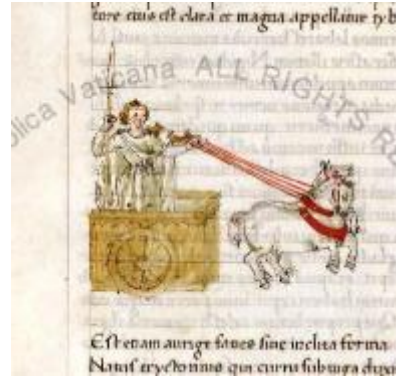 est clara et magna appellatur
Vaticana ALL RIGHTS
Est etiam aurige facies siue inclita forma
Natus eryctonius qui curru sub iuga